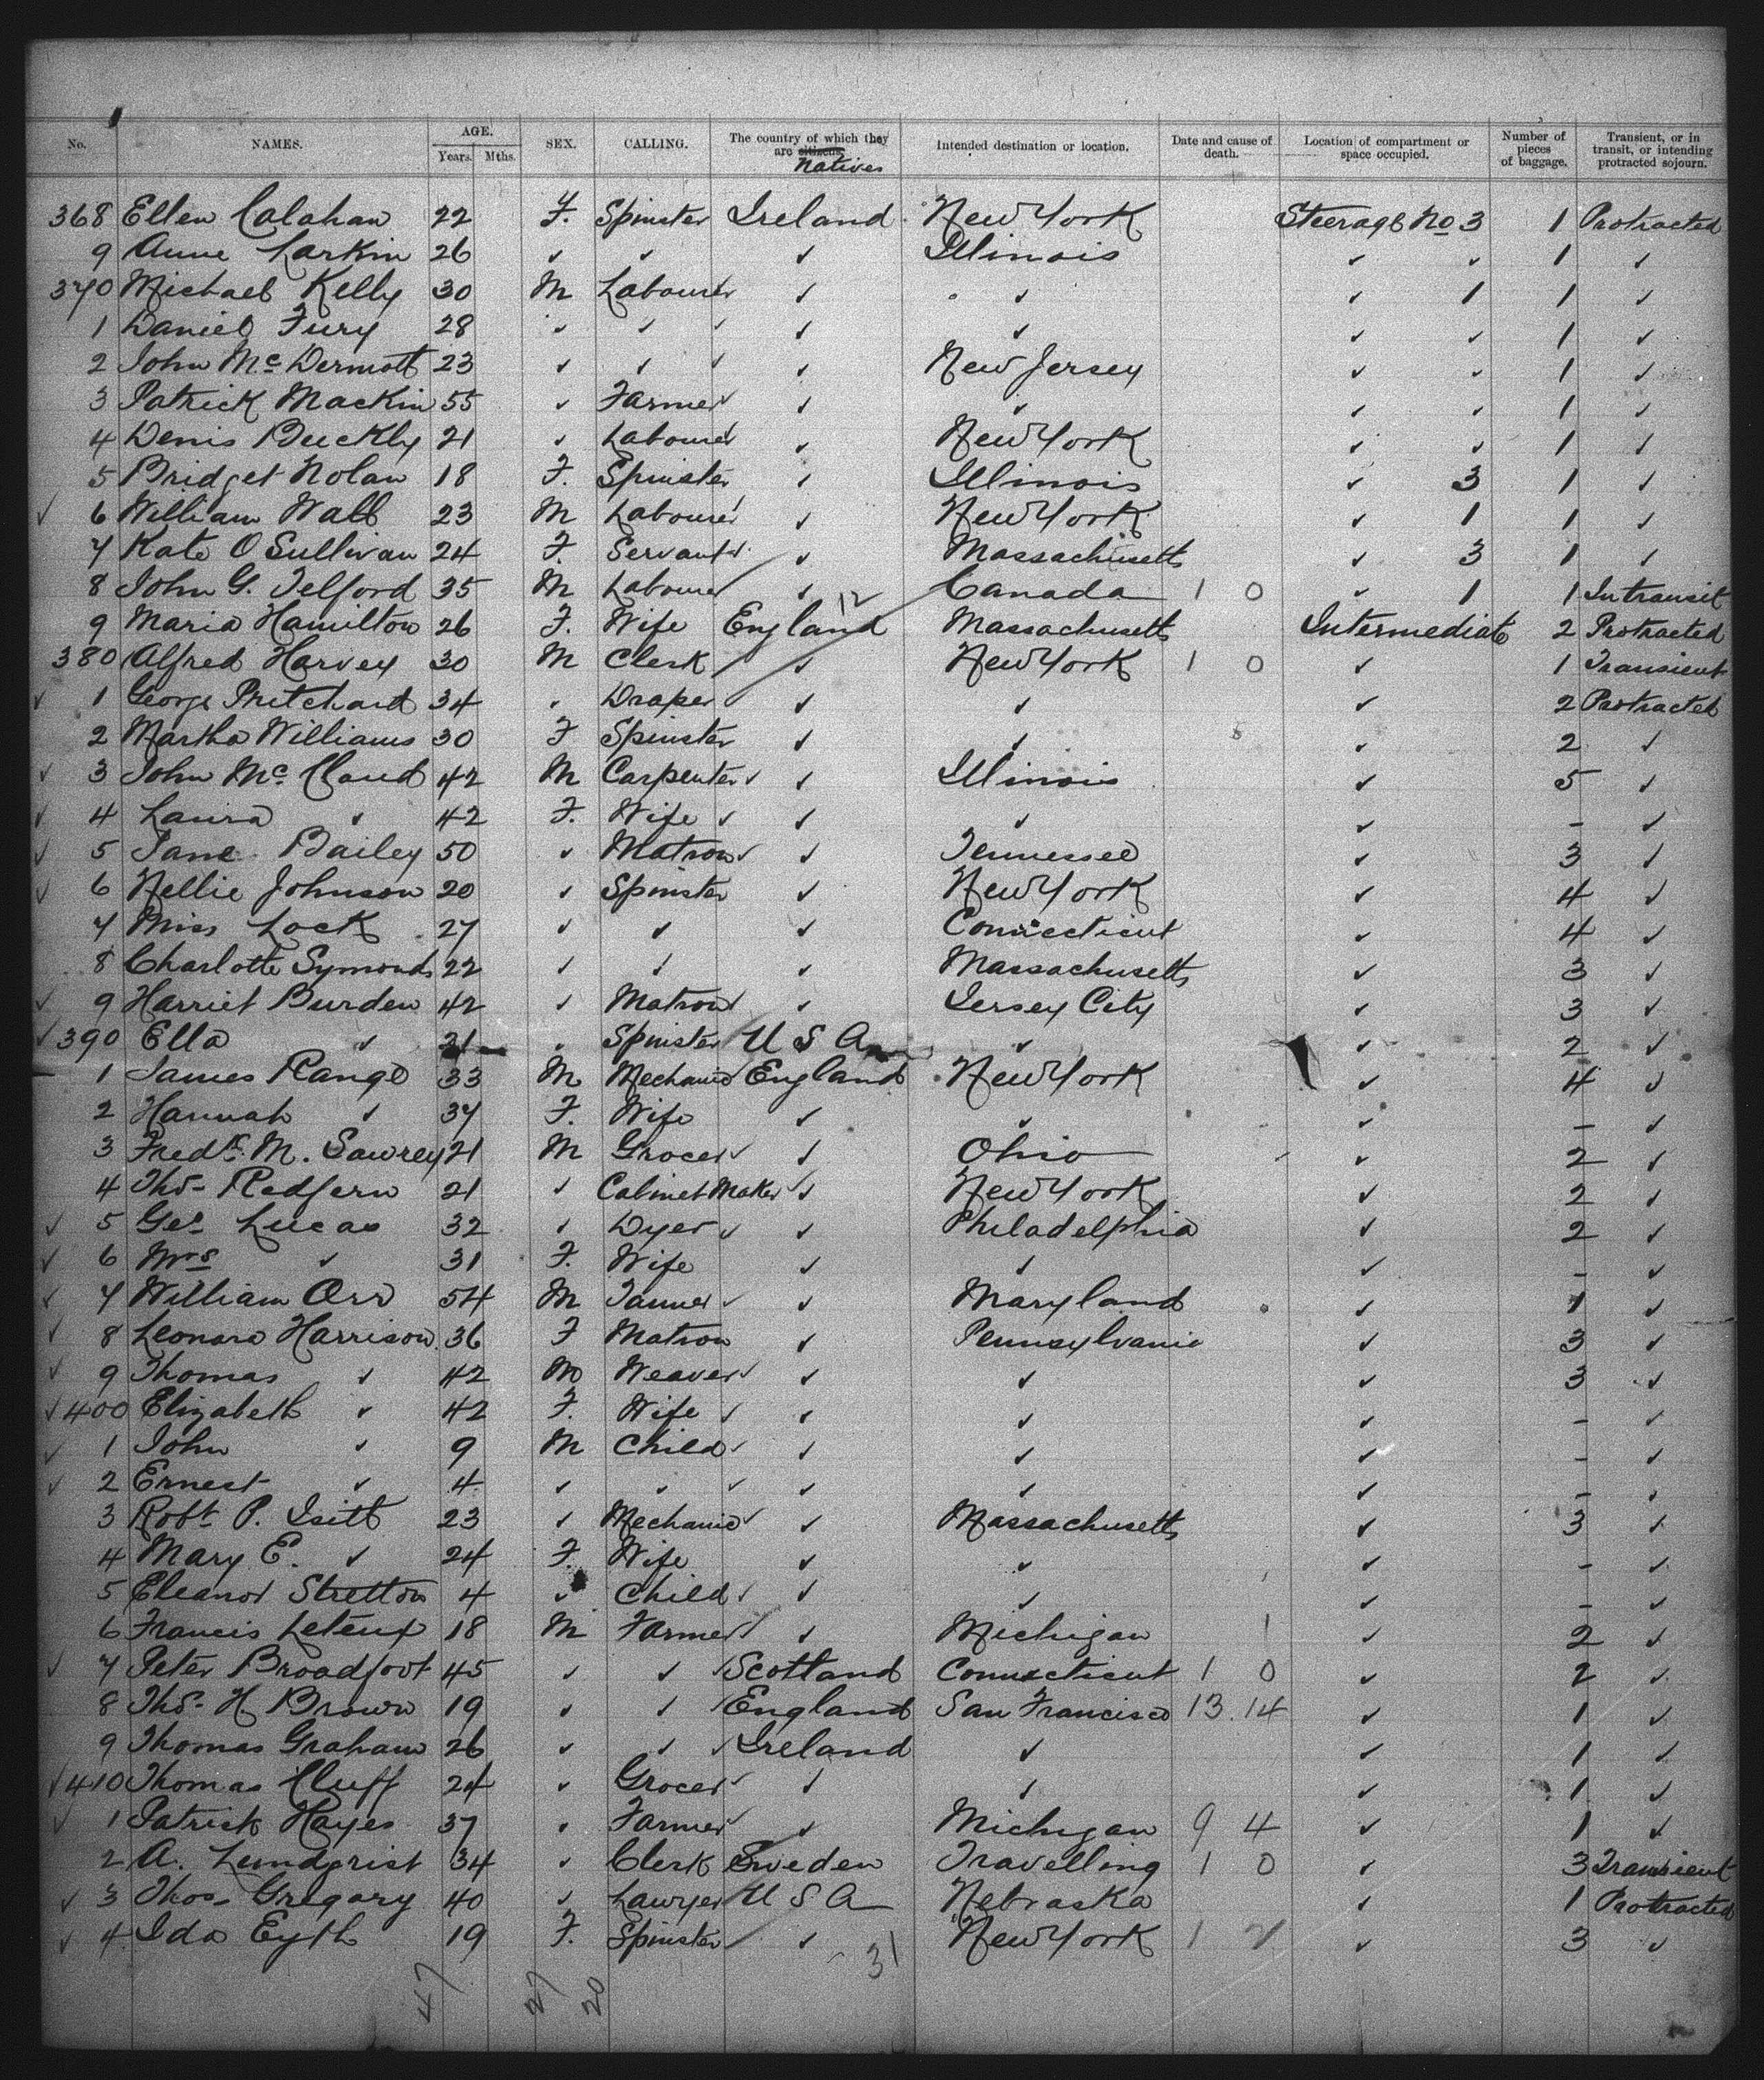 No. NAMES. AGE. Years. Mths. SEX. CALLING. The country of which they are citizens. Natives Intended destination or location. Date and cause of death. Location of compartment or space occupied. Number of pieces of baggage. Transient, or in transit, or intending protracted sojourn.
368 Ellen Calahan 22 F. Spinster Ireland New York Steerage No 3 1 Protracted
9 Anne Larkin 26 ✓ ✓ ✓ Illinois ✓ ✓ 1 ✓
370 Michael Kelly 30 M Labourer ✓ ✓ ✓ 1 1 ✓
1 Daniel Fury 28 ✓ ✓ ✓ ✓ ✓ ✓ 1 ✓
2 John Mc Dermott 23 ✓ ✓ ✓ New Jersey ✓ ✓ 1 ✓
3 Patrick Mackin 55 ✓ Farmer ✓ ✓ ✓ ✓ 1 ✓
4 Denis Buckly 21 ✓ Labourer ✓ New York ✓ ✓ 1 ✓
5 Bridget Nolan 18 F. Spinster ✓ Illinois ✓ 3 1 ✓
✓ 6 William Wall 23 M Labourer ✓ New York ✓ 1 1 ✓
7 Kate O Sullivan 24 F. Servant ✓ Massachusetts ✓ 3 1 ✓
8 John G. Telford 35 M Labourer ✓ Canada 1 0 ✓ 1 1 In transit
9 Maria Hamilton 26 F. Wife England 12 Massachusetts Intermediate 2 Protracted
380 Alfred Harvey 30 M Clerk ✓ New York 1 0 ✓ 1 Transient
✓ 1 George Pritchard 34 ✓ Draper ✓ ✓ ✓ 2 Protracted
2 Martha Williams 30 F Spinster ✓ ✓ ✓ 2 ✓
✓ 3 John Mc Claud 42 M Carpenter ✓ ✓ Illinois ✓ 5 ✓
✓ 4 Laura ✓ 42 F. Wife ✓ ✓ ✓ ✓ - ✓
✓ 5 Jane Bailey 50 ✓ Matron ✓ ✓ Tennessee ✓ 3 ✓
✓ 6 Nellie Johnson 20 ✓ Spinster ✓ New York ✓ 4 ✓
7 Miss Lock 27 ✓ ✓ ✓ Connecticut ✓ 4 ✓
8 Charlotte Symonds 22 ✓ ✓ ✓ Massachusetts ✓ 3 ✓
✓ 9 Harriet Burden 42 ✓ Matron ✓ Jersey City ✓ 3 ✓
✓ 390 Ella ✓ 21 ✓ Spinster U S A ✓ ✓ 2 ✓
1 James Range 33 M Mechanic England New York ✓ 4 ✓
2 Hannah ✓ 37 F. Wife ✓ ✓ ✓ - ✓
3 Fredk. M. Sawrey 21 M Grocer ✓ ✓ Ohio ✓ 2 ✓
4 Thos Redfern 21 ✓ Cabinet Maker ✓ New York ✓ 2 ✓
✓ 5 Geo Lucas 32 ✓ Dyer ✓ ✓ Philadelphia ✓ 2 ✓
✓ 6 Mrs ✓ 31 F. Wife ✓ ✓ ✓ - ✓
✓ 7 William Orr 54 M Tanner ✓ ✓ Maryland ✓ 1 ✓
✓ 8 Leonara Harrison 36 F Matron ✓ Pennsylvania ✓ 3 ✓
✓ 9 Thomas ✓ 42 M Weaver ✓ ✓ ✓ ✓ 3 ✓
✓ 400 Elizabeth ✓ 42 F. Wife ✓ ✓ ✓ ✓ - ✓
✓ 1 John ✓ 9 M Child ✓ ✓ ✓ ✓ - ✓
✓ 2 Ernest ✓ 4 ✓ ✓ ✓ ✓ ✓ ✓ - ✓
3 Robt P. Isitt 23 ✓ Mechanic ✓ ✓ Massachusetts ✓ 3 ✓
4 Mary E. ✓ 24 F. Wife ✓ ✓ ✓ - ✓
5 Eleanor Stretton 4 ✓ Child ✓ ✓ ✓ ✓ - ✓
6 Francis 18 M Farmer ✓ ✓ Michigan 1 ✓ 2 ✓
✓ 7 Peter Broadfoot 45 ✓ ✓ Scotland Connecticut 1 0 ✓ 2 ✓
8 Thos. H. Brown 19 ✓ ✓ England San Francisco 13 14 ✓ 1 ✓
9 Thomas Graham 26 ✓ ✓ Ireland ✓ ✓ 1 ✓
✓ 410 Thomas Cluff 24 ✓ Grocer ✓ ✓ ✓ ✓ 1 ✓
✓ 1 Patrick Hayes 37 ✓ Farmer ✓ ✓ Michigan 9 4 ✓ 1 ✓
2 A. Lundqrist 34 ✓ Clerk Sweden Travelling 1 0 ✓ 3 Transient
✓ 3 Thos Gregory 40 ✓ Lawyer U S A Nebraska ✓ 1 Protracted
✓ 4 Ida Eyth 19 F. Spinster ✓ New York 1 2 ✓ 3 ✓
47 27 20 31